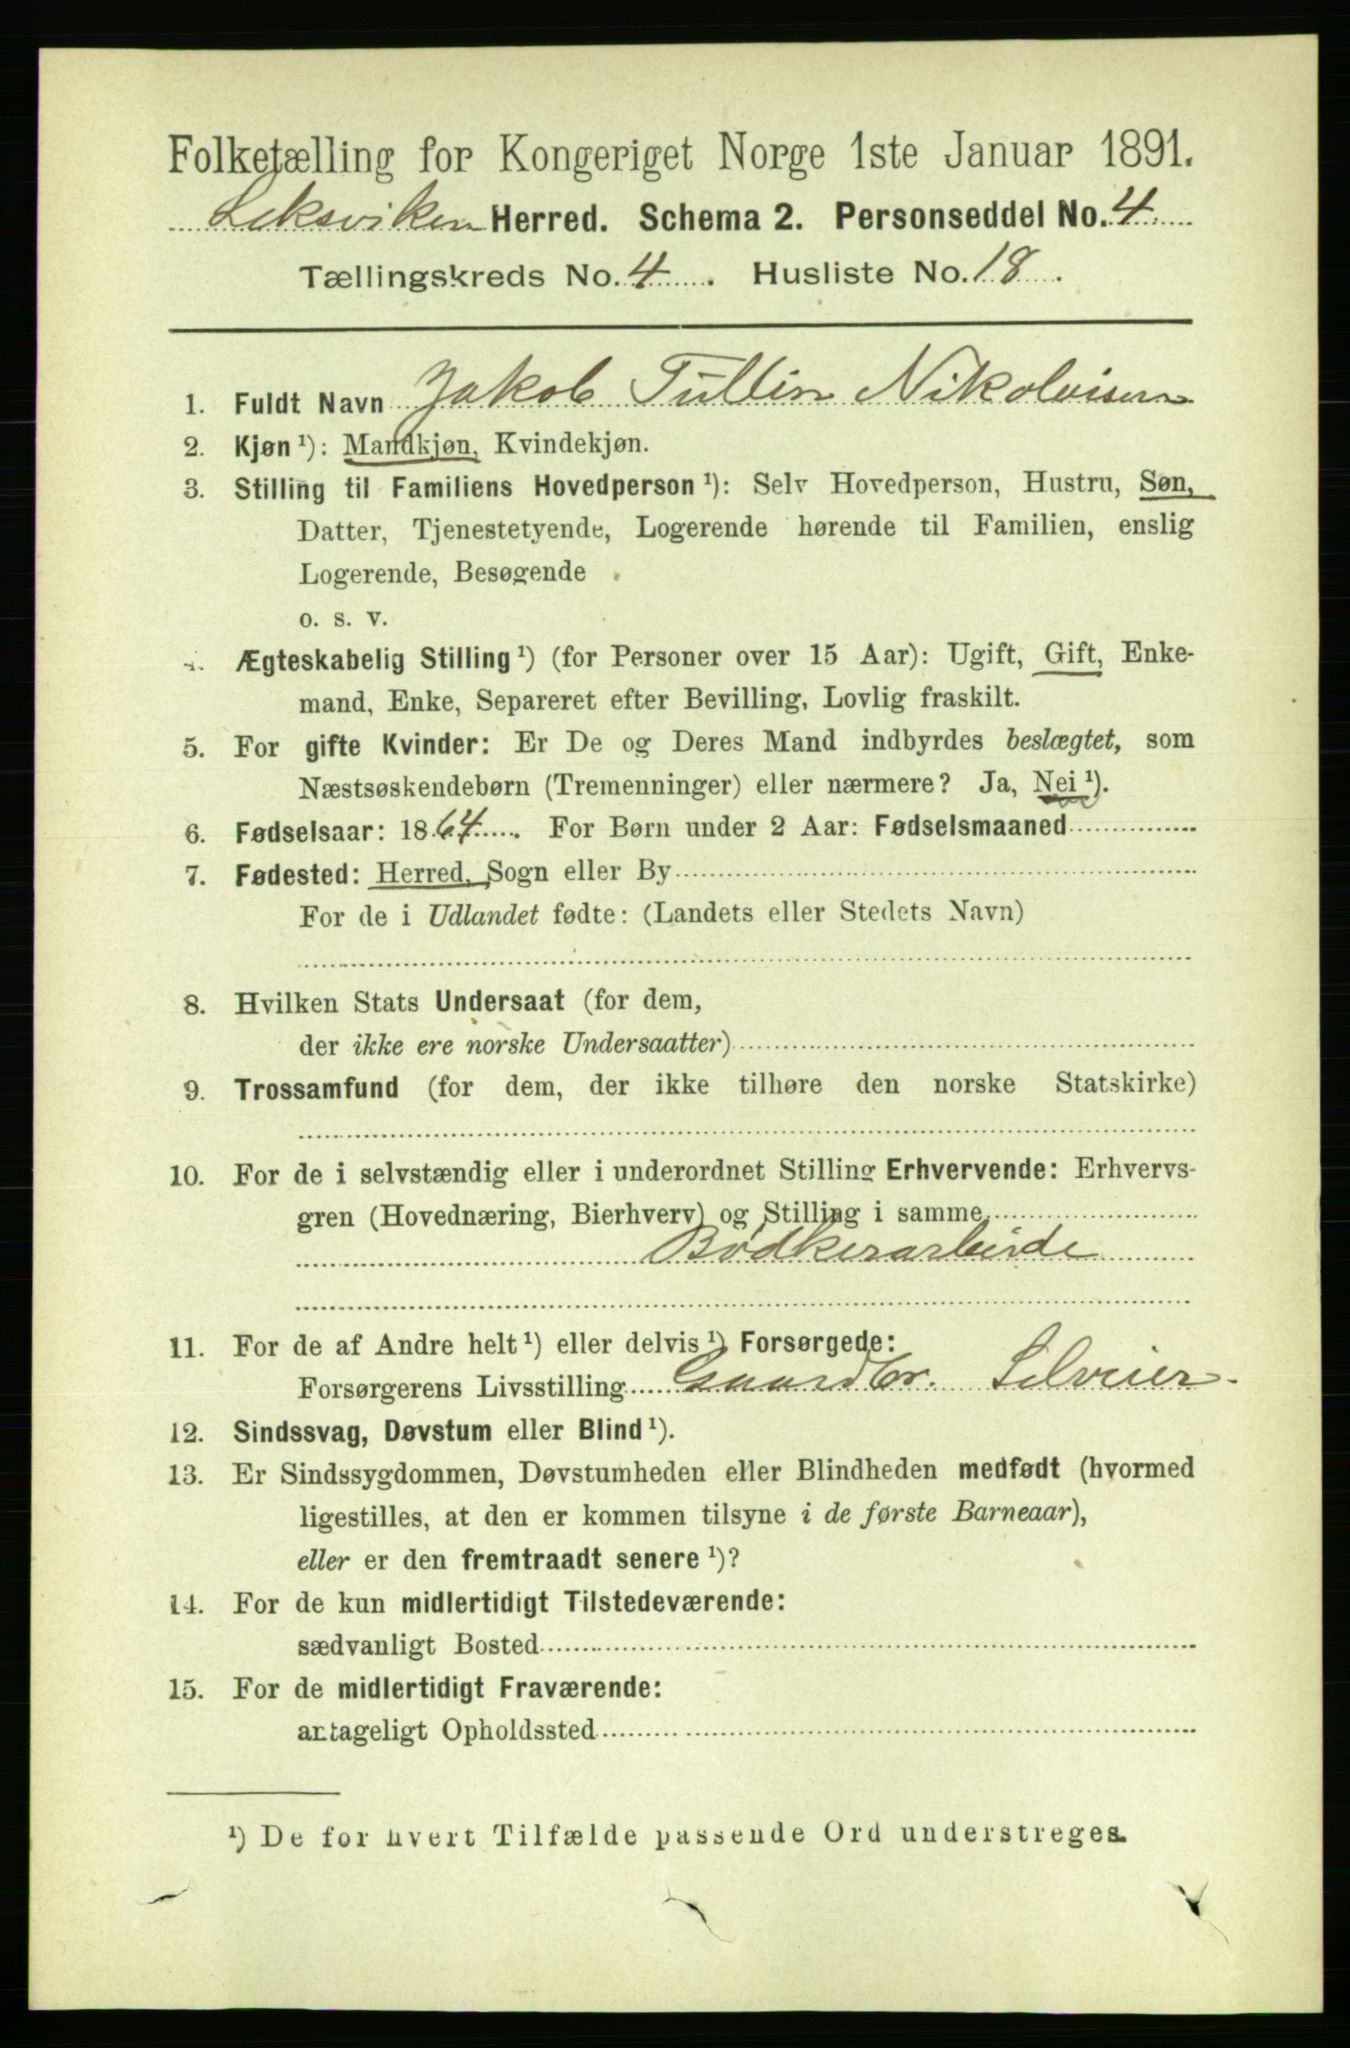 Folketælling for Kongeriget Norge 1ste Januar 1891.
Leksviken Herred. Schema 2. Personseddel No. 4
Tællingskreds No. 4. Husliste No. 18.
1. Fuldt Navn Jakob Tullin Nikolaisen
2. Kjøn ¹): Mandkjøn, Kvindekjøn.
3. Stilling til Familiens Hovedperson ¹): Selv Hovedperson, Hustru, Søn,
Datter, Tjenestetyende, Logerende hørende til Familien, enslig
Logerende, Besøgende
o. s. v.
4. Ægteskabelig Stilling ¹) (for Personer over 15 Aar): Ugift, Gift, Enke-
mand, Enke, Separeret efter Bevilling, Lovlig fraskilt.
5. For gifte Kvinder: Er De og Deres Mand indbyrdes beslægtet, som
Næstsøskendebørn (Tremenninger) eller nærmere? Ja, Nei ¹).
6. Fødselsaar: 1864. For Børn under 2 Aar: Fødselsmaaned
7. Fødested: Herred, Sogn eller By
For de i Udlandet fødte: (Landets eller Stedets Navn)
8. Hvilken Stats Undersaat (for dem,
der ikke ere norske Undersaatter)
9. Trossamfund (for dem, der ikke tilhøre den norske Statskirke)
10. For de i selvstændig eller i underordnet Stilling Erhvervende: Erhvervs-
gren (Hovednæring, Bierhverv) og Stilling i samme
Bødkerarbeide
11. For de af Andre helt ¹) eller delvis ¹) Forsørgede:
Forsørgerens Livsstilling Gaardbr. Selveier
12. Sindssvag, Døvstum eller Blind ¹).
13. Er Sindssygdommen, Døvstumheden eller Blindheden medfødt (hvormed
ligestilles, at den er kommen tilsyne i de første Barneaar),
eller er den fremtraadt senere ¹)?
14. For de kun midlertidigt Tilstedeværende:
sædvanligt Bosted
15. For de midlertidigt Fraværende:
antageligt Opholdssted
¹) De for hvert Tilfælde passende Ord understreges.